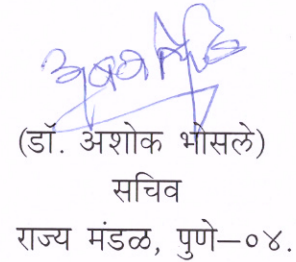 (डॉ. अशोक भोसले)
सचिव
राज्य मंडळ, पुणे–०४.